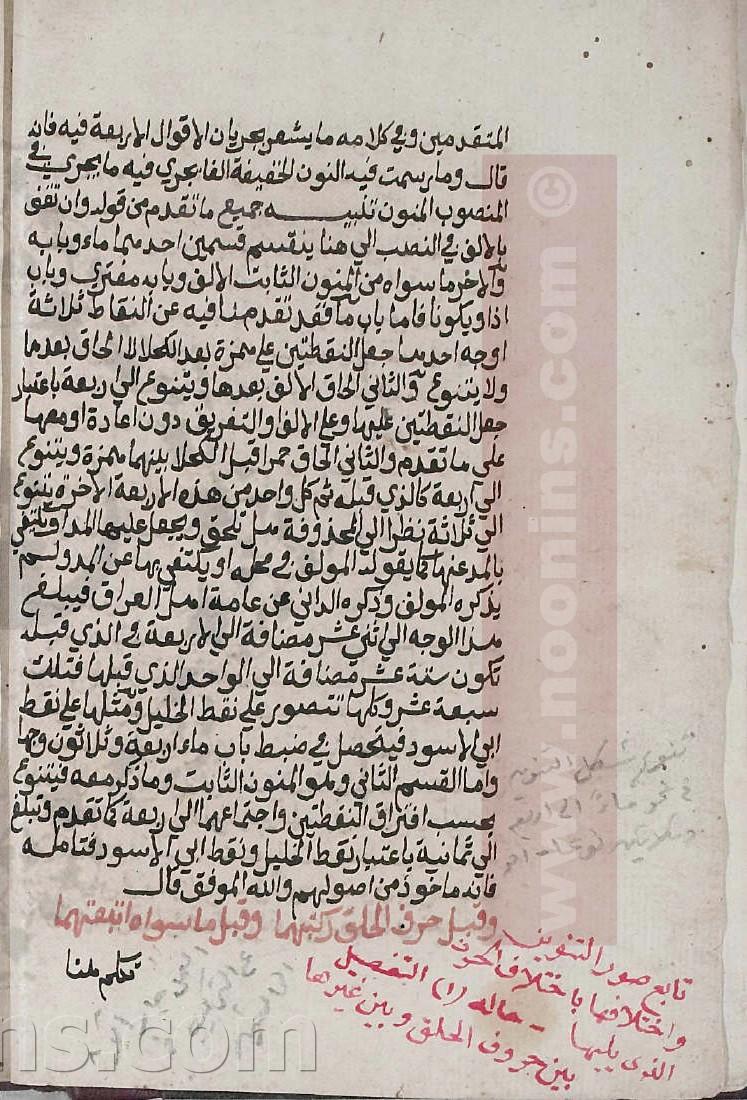 المتقدمين وفي كلامه ما يشعر بجريان الاقوال الاربعة فيه فانه
قال وما رسمت فيه النون الخفيفة الفا يجري فيه ما يجري في
المنصوب المنون تنبيه جميع ما تقدم من قوله وان تقف
بالالف في النصب الي هنا ينقسم قسمين احدهما ماء وبابه
والاخر ما سواه من المنون الثابت الالف وبابه مفتري وباب
اذا ويكونا فاما باب ماء فقد تقدم لنا فيه عن النقاط ثلاثة
اوجه احدها جعل النقطتين علي همزة بعد الكحلا لا الحاق بعدها
ولا يتنوع والثاني الحاق الالف بعدها ويتنوع الي اربعة باعتبار
جعل النقطتين عليها وعلي الالف والتفريق دون اعادة او معها
علي ما تقدم والثاني الحاق حمرا قبل الكحلا بينهما همزة ويتنوع
الي اربعة كالذي قبله ثم كل واحد من هذه الاربعة الاخرة يتنوع
الي ثلاثة نظرا الي المحذوفة هل تلحق ويجعل عليها المد او يكتفي
بالمد عنها كما يقوله المولف في محله او يكتفي بها عن المد ولم
يذكره المولف وذكره الداني عن عامة اهل العراق فيبلغ
هذا الوجه الي اثني عشر مضافة الي الاربعة في الذي قبله
تكون ستة عشر مضافة الي الواحد الذي قبلها فتلك
سبعة عشر وكلها تتصور علي نقط الخليل ومثلها علي نقط
ابي الاسود فيتحصل في ضبط باب ماء اربعة وثلاثون وجها
واما القسم الثاني وهو المنون الثابت وما ذكر معه فيتنوع
بحسب افتراق النقطتين واجتماعهما الي اربعة كما تقدم وتبلغ
الي ثمانية باعتبار نقط الخليل ونقط ابي الاسود فتامله
فانه ماخوذ من اصولهم والله الموفق قال
وقبل حرف الحلق ركبتهما وقبل ما سواه اتبعتهما
تكلم هنا
تابع صور التنوين
واختلافها باختلاف الحرف
الذي يليها - حالة (١) التفصيل
بين حروف الحلق وبين غيرها
www.noonins.com ©
ns.com